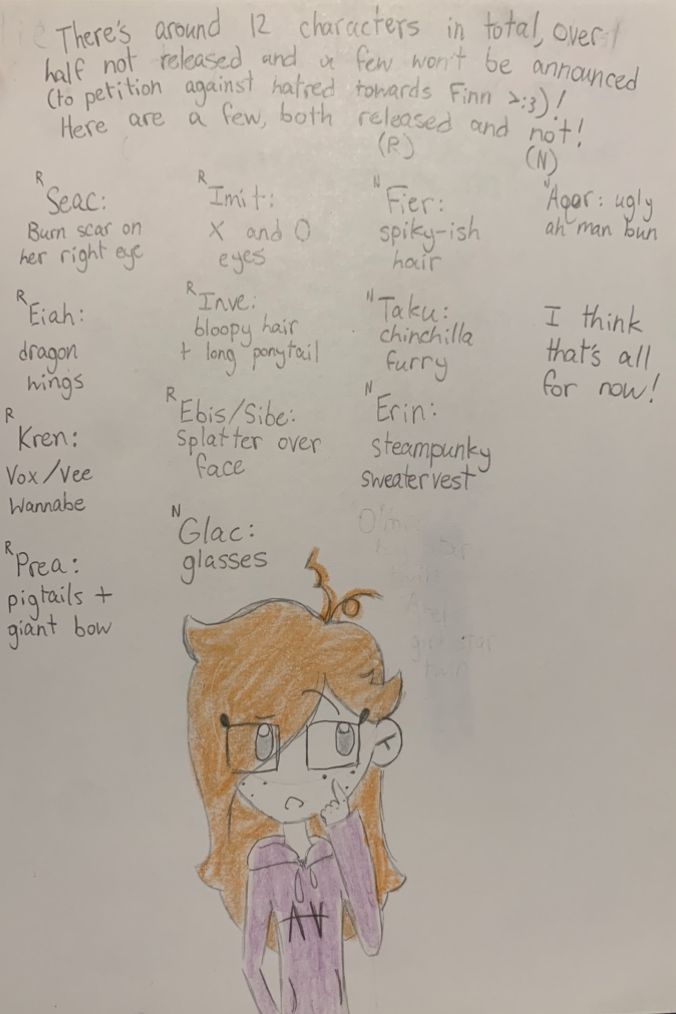 There's around 12 characters in total, over
half not released and a few won't be announced
(to petition against hatred towards Finn >:3)!
Here are a few, both released and not!
(R) (N)
R Seac:
Burn scar on
her right eye
R Eiah:
dragon
wings
R Kren:
Vox/Vee
Wannabe
R Prea:
pigtails +
giant bow
R Imit:
X and O
eyes
R Inve:
bloopy hair
+ long ponytail
R Ebis/Sibe:
splatter over
face
N Glac:
glasses
N Fier:
spiky-ish
hair
N Taku:
chinchilla
furry
N Erin:
steampunky
sweatervest
N Agor: ugly
ah man bun
I think
that's all
for now!
AV